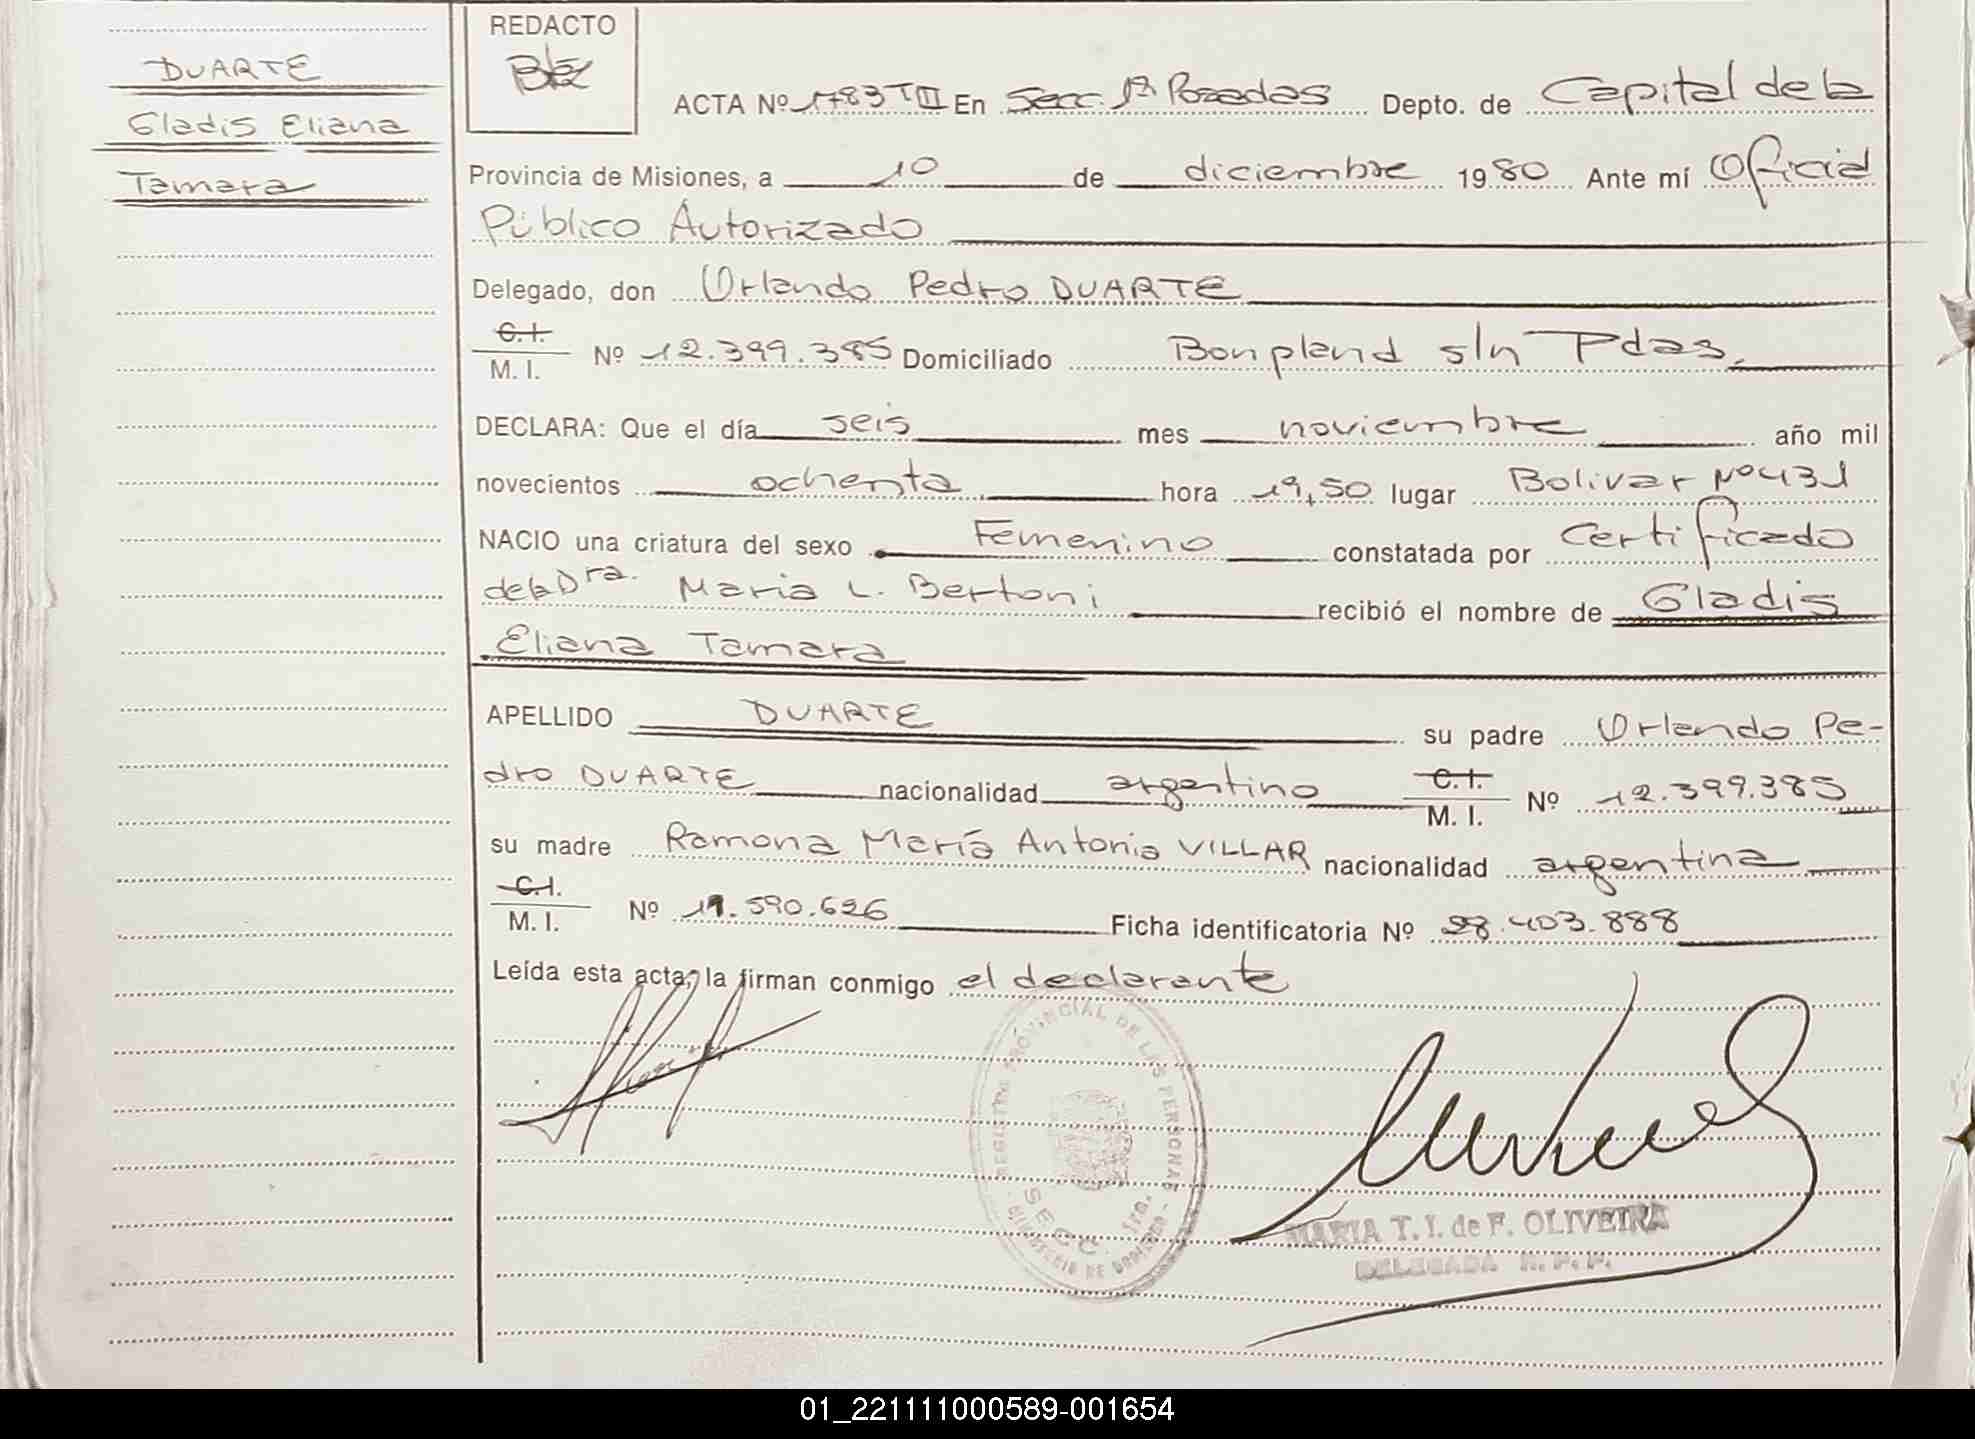 DUARTE
Gladis Eliana
Tamara
REDACTO
ACTA Nº 1783 TIII En Secc. 1ª Posadas Depto. de Capital de la
Provincia de Misiones, a 10 de diciembre 1980 Ante mí Oficial
Público Autorizado
Delegado, don Orlando Pedro DUARTE
C.I.
M. I. Nº 12.399.385 Domiciliado Bonpland s/n Pdas.
DECLARA: Que el día seis mes noviembre año mil
novecientos ochenta hora 19,50 lugar Bolivar Nº 431
NACIO una criatura del sexo Femenino constatada por Certificado
de la Dra. Maria L. Bertoni recibió el nombre de Gladis
Eliana Tamara
APELLIDO DUARTE su padre Orlando Pe-
dro DUARTE nacionalidad argentino C.I.
M. I. Nº 12.399.385
su madre Ramona María Antonia VILLAR nacionalidad argentina
C.I.
M. I. Nº 11.590.626 Ficha identificatoria Nº 28.403.888
Leída esta acta, la firman conmigo el declarante
REGISTRO PROVINCIAL DE LAS PERSONAS
SECC. 1ra.
MARIA T. I. de F. OLIVEIRA
DELEGADA R. P. P.
01_221111000589-001654